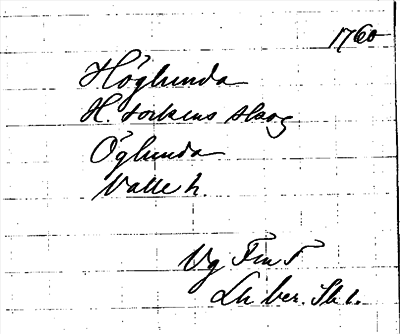 1760
Höglunda
H. sockens skog
Öglunda
Valle h.
Vg Fm T
Lh ber. Sk 1.